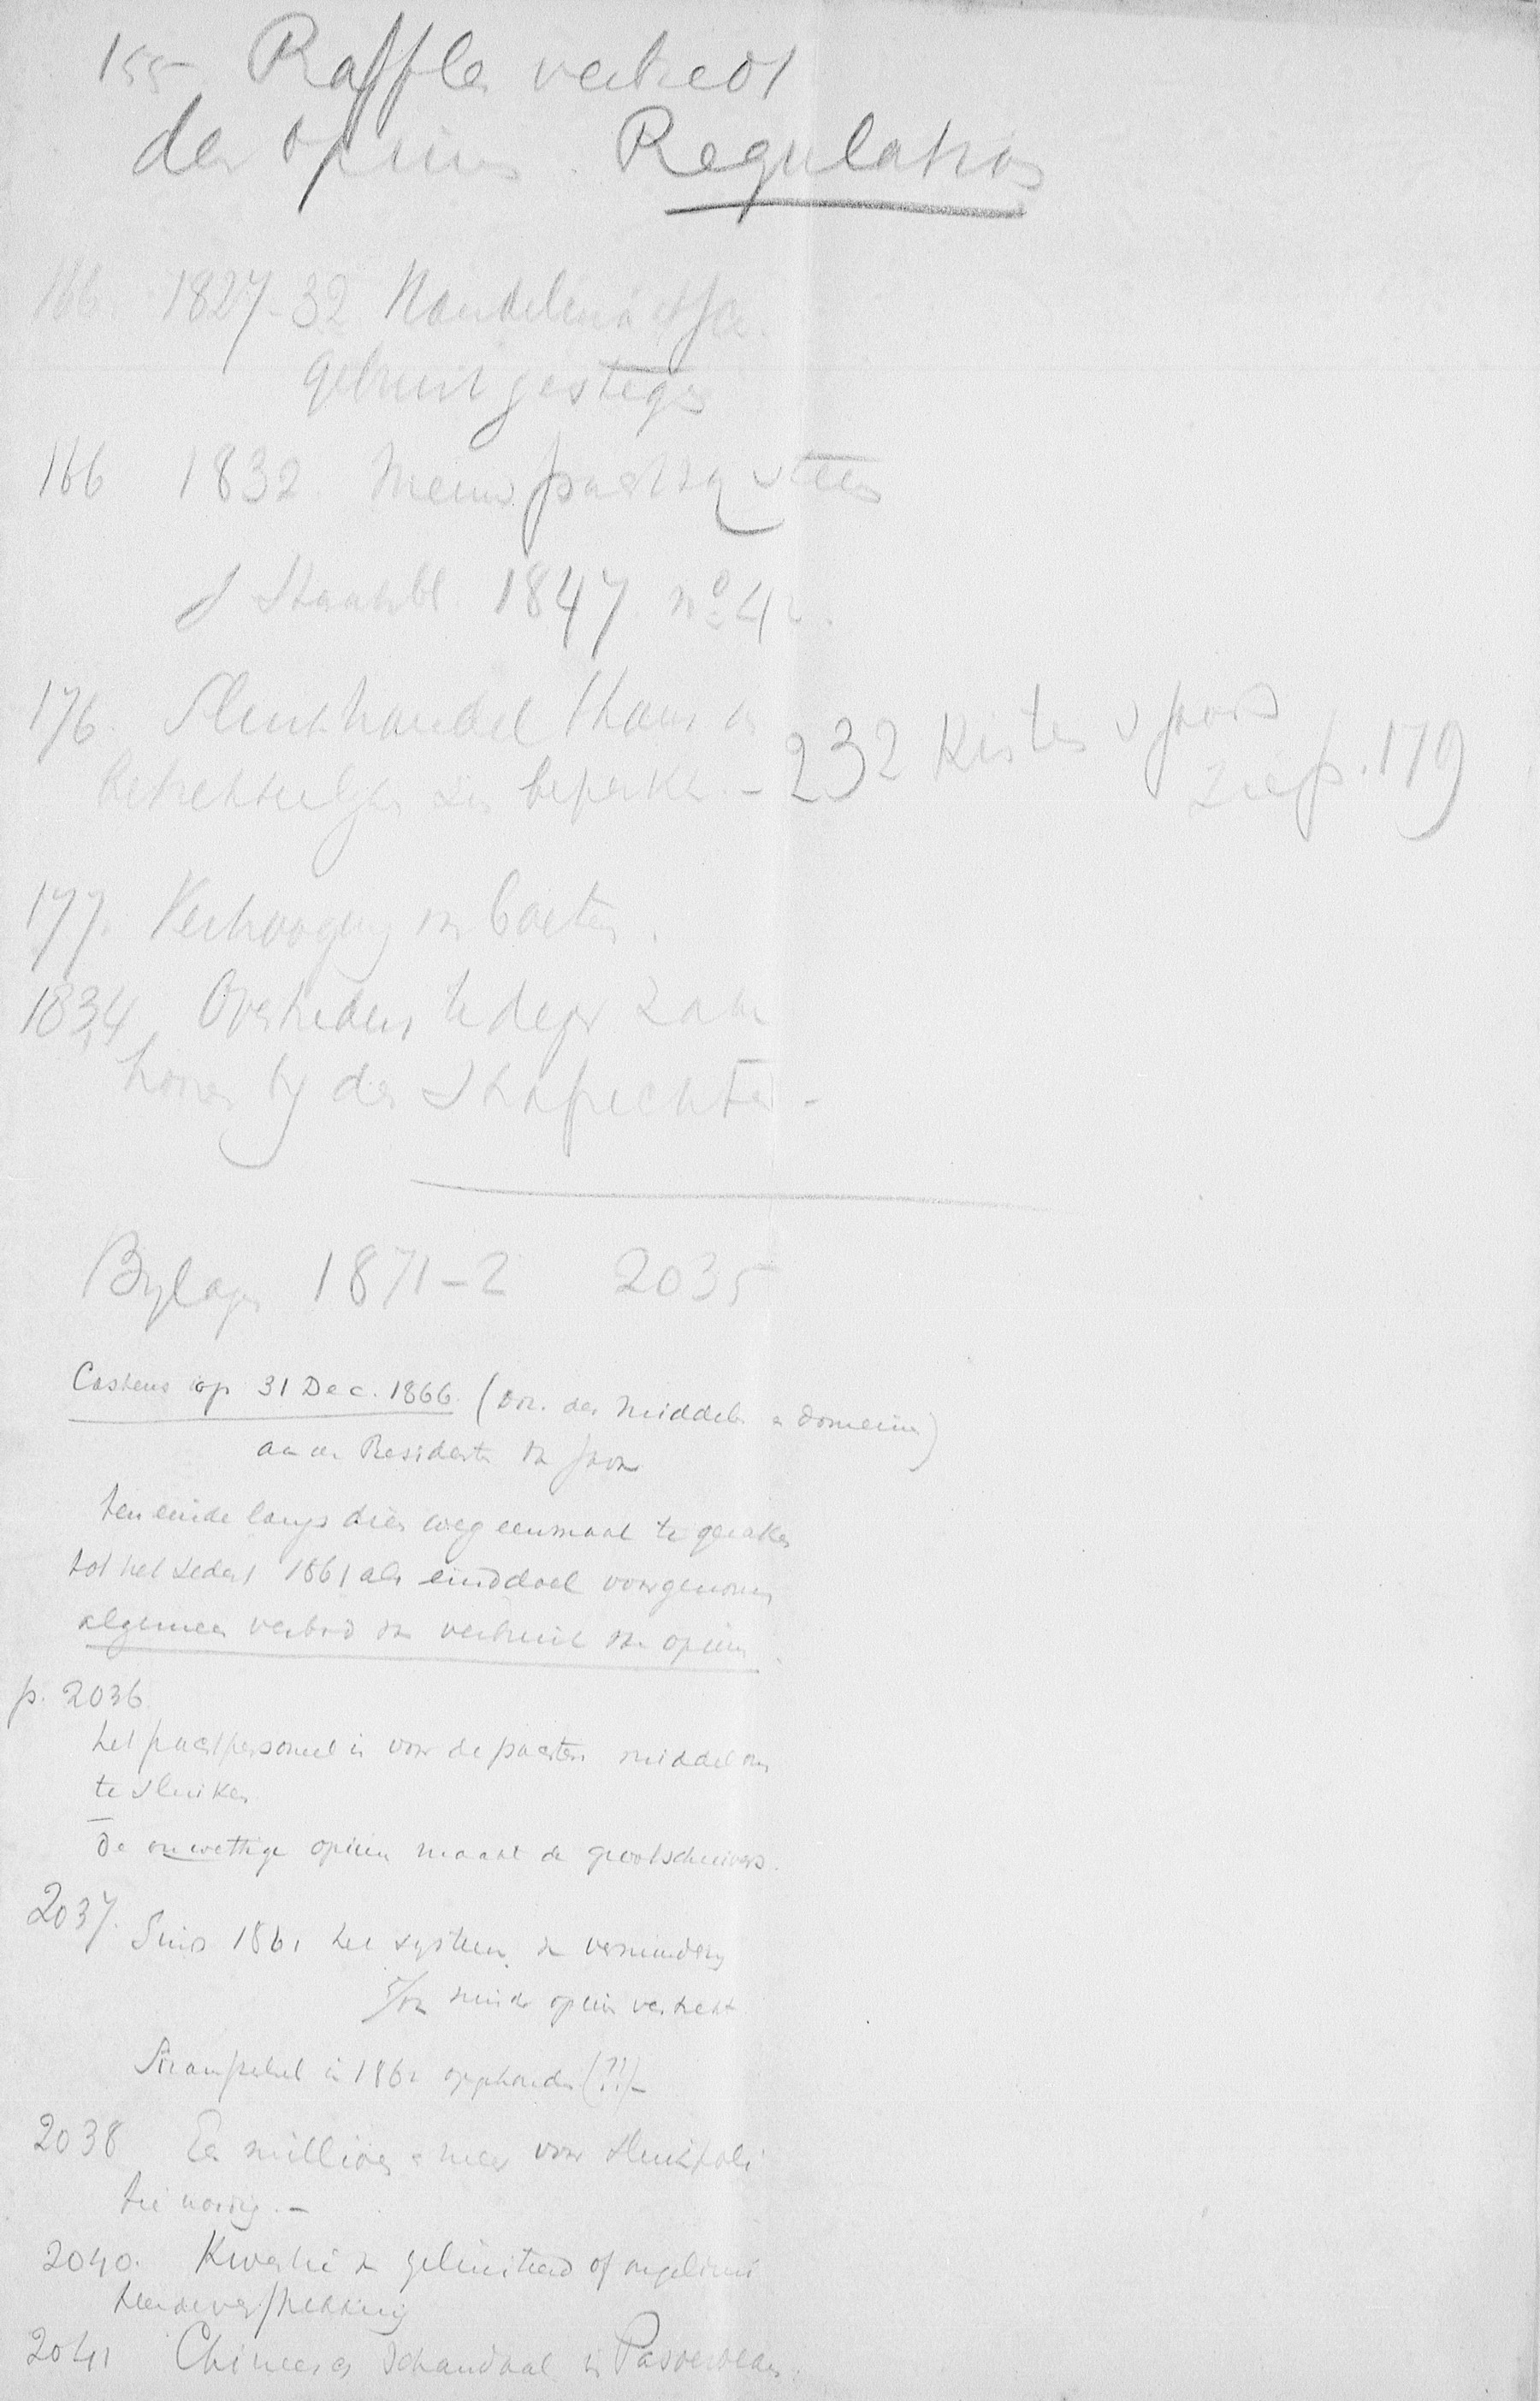 155 Raffles verbiedt
den opium. Regulations
166. 1827-32 Handelmij
gebruik gestegen
166 1832. Nieuw pachtsysteem
Staatsbl. 1847. no 42.
176. Sluikhandel thans
betrekkelijk beperkt. - 232 Kisten
zie p. 179
177. Verhooging van boeten.
1834 Overheden te dezer zake
bij den
Bylagen 1871-2 2035
Castens op 31 Dec. 1866. (Dir. der Middelen en Domeinen)
aan de Residenten van Java
ten einde langs dien weg eenmaal te geraken
tot het sedert 1861 als einddoel voorgenomen
algemeen verbod van verbruik van opium.
p. 2036.
het pachtpersoneel is voor de pachters middel om
te sluiken
De onwettige opium maakt de grootschuivers.
2037. Sinds 1861 het systeem van vermindering
minder opium verstrekt
Siram in 1862 opgehouden (??) -
2038 Een millioen en meer voor sluikpoli
tie noodig. -
2040. Kwestie van gelimiteerd of ongelimi
teerde verstrekking
2041 Chineesch schandaal in Pasoeroean.